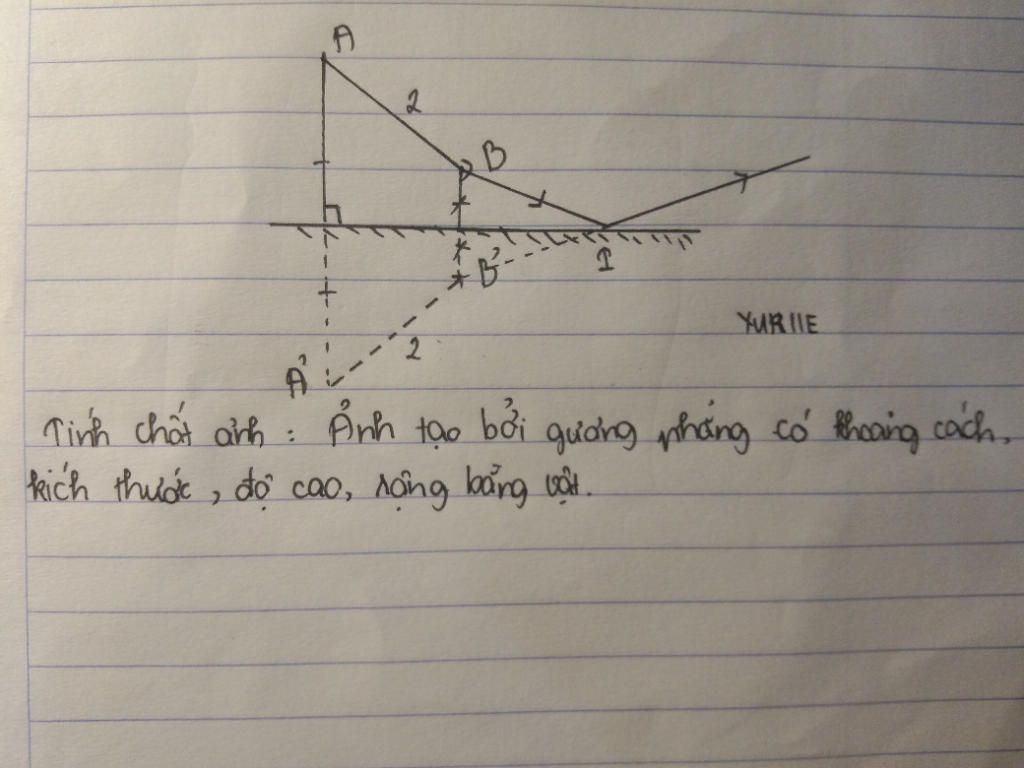 A
2
B
B'
I
YURIIE
2
A'
Tính chất ảnh : Ảnh tạo bởi gương phẳng có khoảng cách,
kích thước, độ cao, rộng bằng vật.